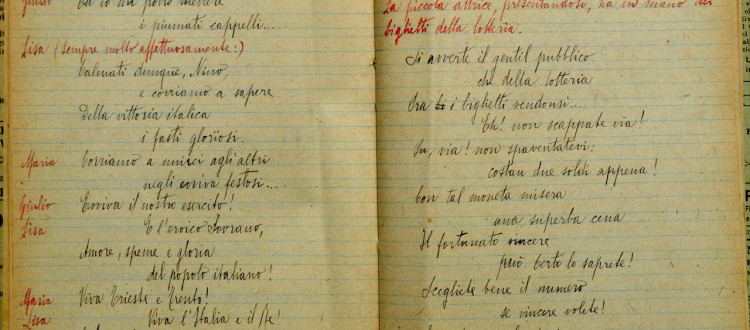 Giulio Ed io ma potrò mettere
i piumati cappelli...
Lisa (sempre molto affettuosamente:)
Calmati dunque, Nino,
e corriamo a sapere
Della vittoria italica
i fasti gloriosi.
Maria Corriamo a unirci agli altri
negli evviva festosi...
Giulio Evviva il nostro esercito!
Lisa E l'eroico Sovrano,
Amore, speme e gloria
del popolo italiano!
Maria Viva Trieste e Trento!
Lisa Viva l'Italia e il Re!
La piccola attrice, presentandosi, ha in mano dei
biglietti della lotteria.
Si avverte il gentil pubblico
che della lotteria
Ora i biglietti vendonsi...
Eh! non scappate via!
Su, via! non spaventatevi:
costan due soldi appena!
Con tal moneta misera
una superba cena
Il fortunato vincere
può. Certo lo saprete!
Scegliete bene il numero
se vincere volete!